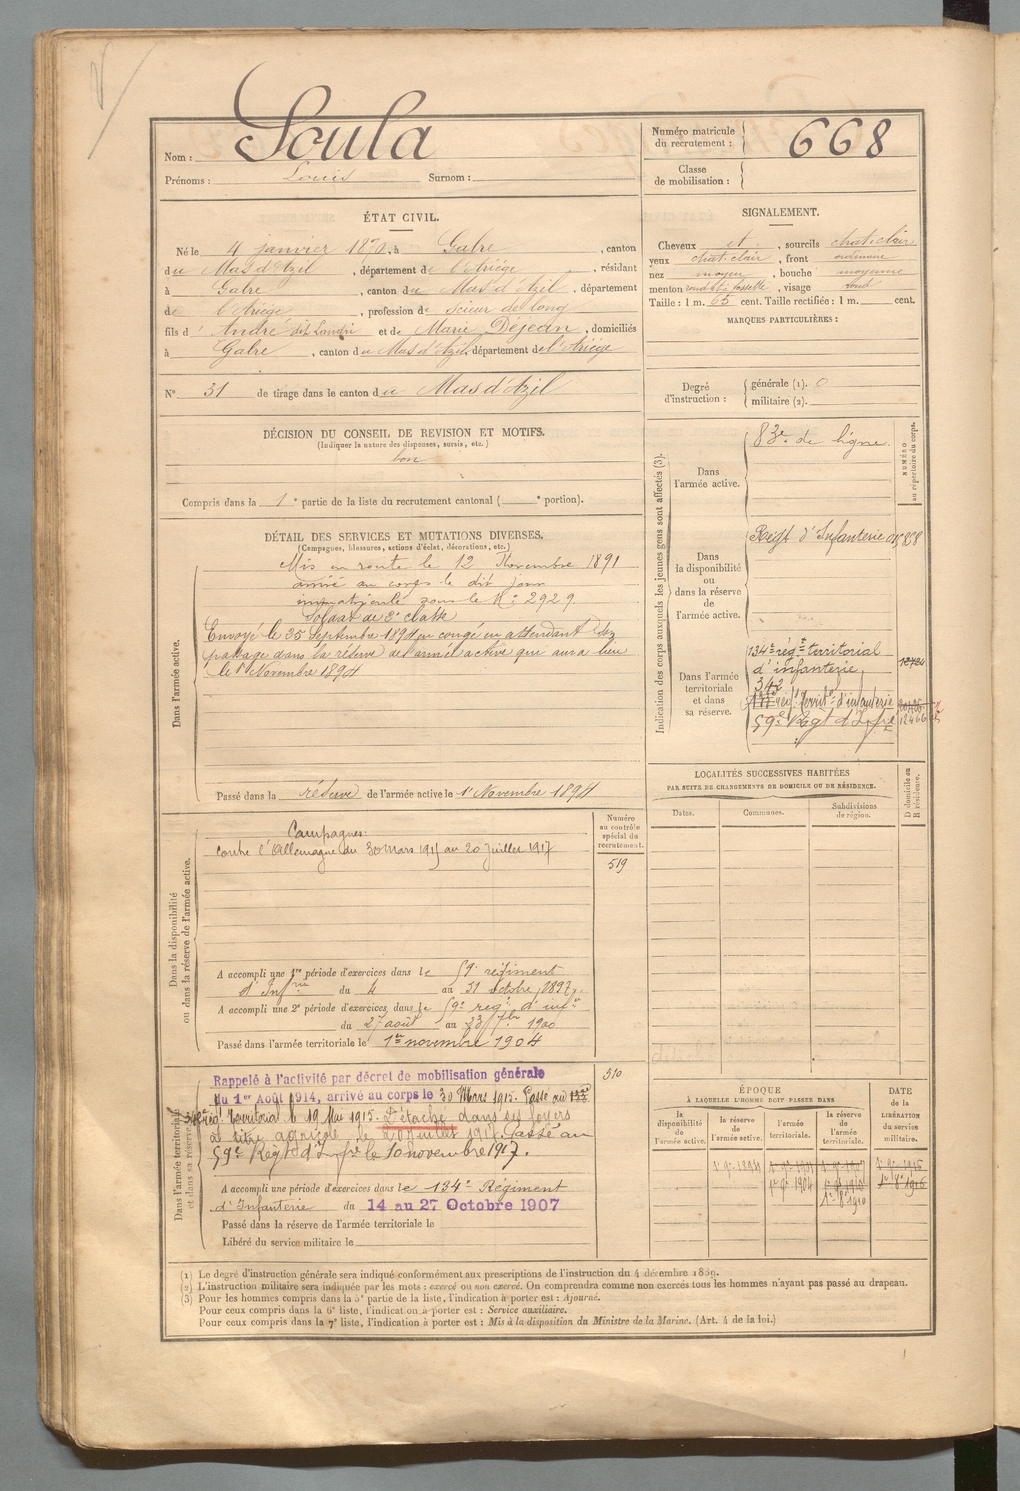 Nom : Soula
Prénoms : Louis Surnom :
Numéro matricule du recrutement : 668
Classe de mobilisation :
ÉTAT CIVIL.
Né le 4 janvier 1870, à Gabre, canton
du Mas d'Azil, département de l'Ariège, résidant
à Gabre, canton du Mas d'Azil, département
de l'Ariège, profession de scieur de long
fils d' André dit Landri et de Marie Déjean, domiciliés
à Gabre, canton du Mas d'Azil, département de l'Ariège
N° 31 de tirage dans le canton du Mas d'Azil
SIGNALEMENT.
Cheveux et, sourcils chat. clair
yeux chat. clair, front ordinaire
nez moyen, bouche moyenne
menton rond et à fossette, visage rond
Taille : 1 m. 65 cent. Taille rectifiée : 1 m. cent.
MARQUES PARTICULIÈRES :
Degré d'instruction : générale (1). 0
militaire (2).
DÉCISION DU CONSEIL DE REVISION ET MOTIFS.
(Indiquer la nature des dispenses, sursis, etc.)
bon
Compris dans la 1e partie de la liste du recrutement cantonal ( e portion).
DÉTAIL DES SERVICES ET MUTATIONS DIVERSES.
(Campagnes, blessures, actions d'éclat, décorations, etc.)
Dans l'armée active.
Mis en route le 12 Novembre 1891
arrivé au corps le dit jour
immatriculé sous le N° 2929.
Soldat de 2e classe
Envoyé le 25 Septembre 1894 en congé en attendant son
passage dans la réserve de l'armée active qui aura lieu
le 1er Novembre 1894
Passé dans la réserve de l'armée active le 1er Novembre 1894
Indication des corps auxquels les jeunes gens sont affectés (3).
NUMÉRO au répertoire du corps.
Dans l'armée active.
83e de ligne.
Dans la disponibilité ou dans la réserve de l'armée active.
Regt d'Infanterie
Dans l'armée territoriale et dans sa réserve.
134e régt territorial
d'infanterie,
342
Territ. d'infanterie
59e Regt d'Infie
12724
12466
LOCALITÉS SUCCESSIVES HABITÉES
PAR SUITE DE CHANGEMENTS DE DOMICILE OU DE RÉSIDENCE.
Dates. Communes. Subdivisions de région. D domicile ou R résidence.
Dans la disponibilité ou dans la réserve de l'armée active.
Numéro au contrôle spécial du recrutement.
519
Campagnes:
contre l'Allemagne du 30 mars 1915 au 20 Juillet 1917
A accompli une 1re période d'exercices dans le 59e régiment
d'Infrie du 4 au 31 octobre 1897.
A accompli une 2e période d'exercices dans le 59e régt d'infie
du 27 août au 23 7bre 1900
Passé dans l'armée territoriale le 1er novembre 1904
Dans l'armée territoriale et dans sa réserve.
510
Rappelé à l'activité par décret de mobilisation générale
du 1er Août 1914, arrivé au corps le 30 Mars 1915. Passé au 133e
régt territorial le 19 Mai 1915. Détaché dans ses foyers
à titre agricole le 20 Juillet 1917. Passé au
59e Regt d'Infie le 10 novembre 1917.
A accompli une période d'exercices dans le 134e Régiment
d'Infanterie du 14 au 27 Octobre 1907
Passé dans la réserve de l'armée territoriale le
Libéré du service militaire le
ÉPOQUE
À LAQUELLE L'HOMME DOIT PASSER DANS
la disponibilité de l'armée active.
la réserve de l'armée active.
l'armée territoriale.
la réserve de l'armée territoriale.
DATE de la LIBÉRATION du service militaire.
1er 9bre 1894
1er 9bre 1904
1er 8bre 1910
(1) Le degré d'instruction générale sera indiqué conformément aux prescriptions de l'instruction du 4 décembre 1889.
(2) L'instruction militaire sera indiquée par les mots : exercé ou non exercé. On comprendra comme non exercés tous les hommes n'ayant pas passé au drapeau.
(3) Pour les hommes compris dans la 5e partie de la liste, l'indication à porter est : Ajourné.
Pour ceux compris dans la 6e liste, l'indication à porter est : Service auxiliaire.
Pour ceux compris dans la 7e liste, l'indication à porter est : Mis à la disposition du Ministre de la Marine. (Art. 4 de la loi.)